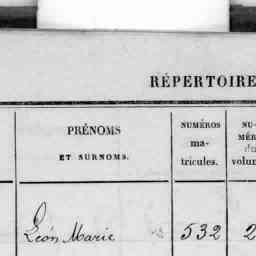 RÉPERTOIRE
PRÉNOMS
ET SURNOMS.
NUMÉROS
ma-
tricules.
NU-
MÉR
du
volum
Léon Marie 532 2